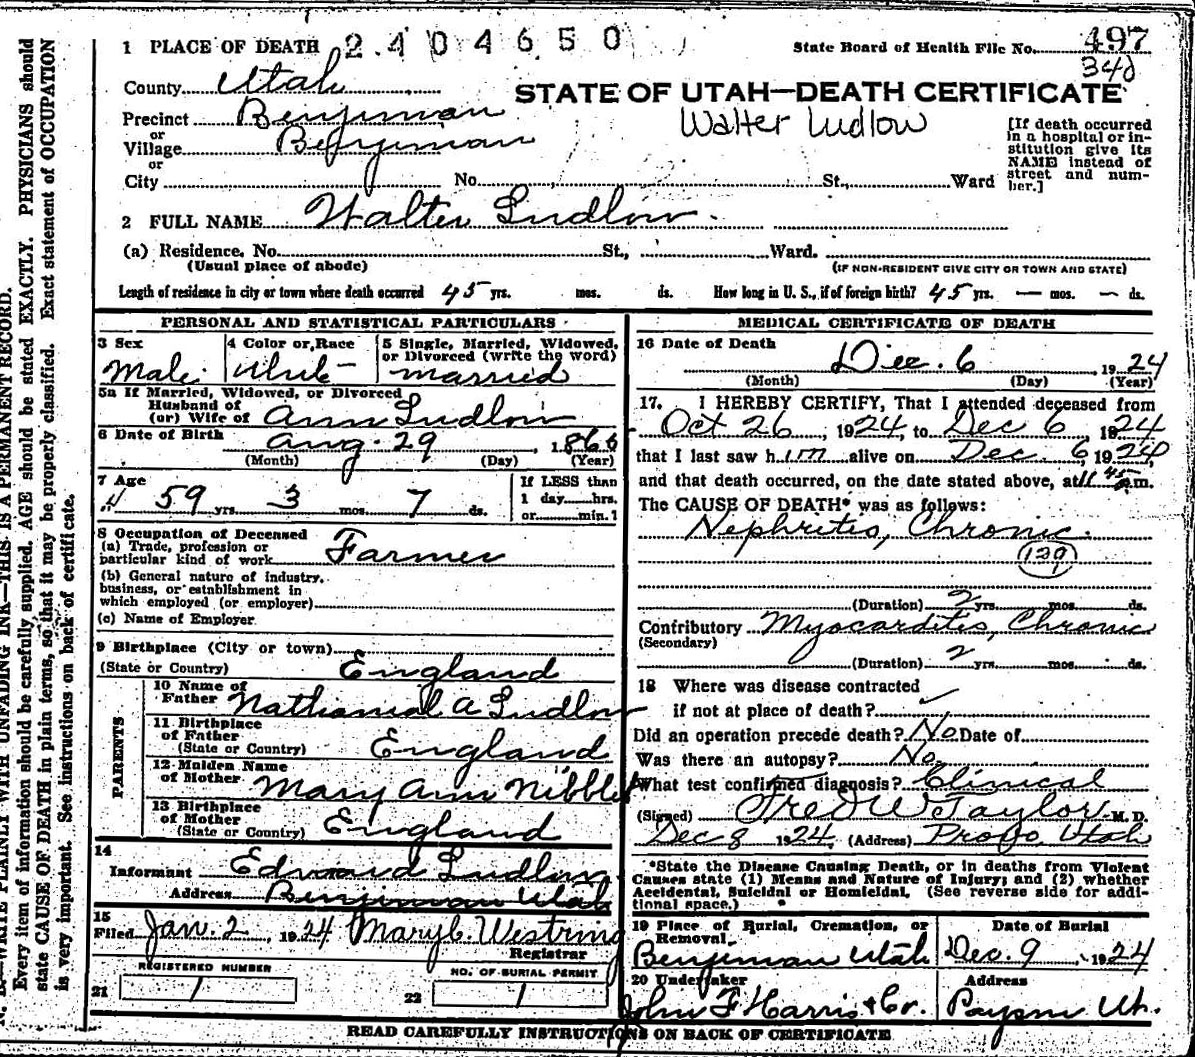 1 PLACE OF DEATH 2404650 State Board of Health File No. 497
340
County Utah
STATE OF UTAH—DEATH CERTIFICATE
Walter Ludlow
Precinct Benjiman
or
Village Benjiman
or
City No. St., Ward
[If death occurred
in a hospital or in-
stitution give its
NAME instead of
street and num-
ber.]
2 FULL NAME Walter Ludlow
(a) Residence, No. St., Ward.
(Usual place of abode) (IF NON-RESIDENT GIVE CITY OR TOWN AND STATE)
Length of residence in city or town where death occurred 45 yrs. mos. ds. How long in U. S., if of foreign birth? 45 yrs. — mos. — ds.
PERSONAL AND STATISTICAL PARTICULARS
3 Sex
Male
4 Color or Race
White
5 Single, Married, Widowed,
or Divorced (write the word)
married
5a If Married, Widowed, or Divorced
Husband of
(or) Wife of Ann Ludlow
6 Date of Birth Aug. 29, 1866
(Month) (Day) (Year)
7 Age
59 yrs. 3 mos. 7 ds.
If LESS than
1 day hrs.
or min.?
8 Occupation of Deceased
(a) Trade, profession or
particular kind of work Farmer
(b) General nature of Industry,
business, or establishment in
which employed (or employer)
(c) Name of Employer
9 Birthplace (City or town)
(State or Country) England
PARENTS
10 Name of
Father Nathanial A Ludlow
11 Birthplace
of Father
(State or Country) England
12 Maiden Name
of Mother Mary Ann Nibblet
13 Birthplace
of Mother
(State or Country) England
14
Informant Edward Ludlow
Address Benjiman Utah
15
Filed Jan. 2, 1924 Mary C. Westring
Registrar
REGISTERED NUMBER
21 1
NO. OF BURIAL PERMIT
22 1
MEDICAL CERTIFICATE OF DEATH
16 Date of Death
Dec. 6, 1924
(Month) (Day) (Year)
17. I HEREBY CERTIFY, That I attended deceased from
Oct 26, 1924, to Dec 6 1924
that I last saw him alive on Dec. 6, 1924,
and that death occurred, on the date stated above, at 11 45 m.
The CAUSE OF DEATH* was as follows:
Nephritis, Chronic.
129
(Duration) 2 yrs. mos. ds.
Contributory Myocarditis, Chronic
(Secondary)
(Duration) 2 yrs. mos. ds.
18 Where was disease contracted
if not at place of death?
Did an operation precede death? No Date of
Was there an autopsy? No
What test confirmed diagnosis? Clinical
(Signed) Fred W Taylor M. D.
Dec 8 1924, (Address) Provo, Utah
*State the Disease Causing Death, or in deaths from Violent
Causes state (1) Means and Nature of Injury; and (2) whether
Accidental, Suicidal or Homicidal. (See reverse side for addi-
tional space.)
19 Place of Burial, Cremation, or
Removal.
Benjiman Utah
Date of Burial
Dec. 9, 1924
20 Undertaker
John F Harris & Co.
Address
Payson Ut.
READ CAREFULLY INSTRUCTIONS ON BACK OF CERTIFICATE
WRITE PLAINLY WITH UNFADING INK—THIS IS A PERMANENT RECORD.
Every item of information should be carefully supplied. AGE should be stated EXACTLY. PHYSICIANS should
state CAUSE OF DEATH in plain terms, so that it may be properly classified. Exact statement of OCCUPATION
is very important. See instructions on back of certificate.